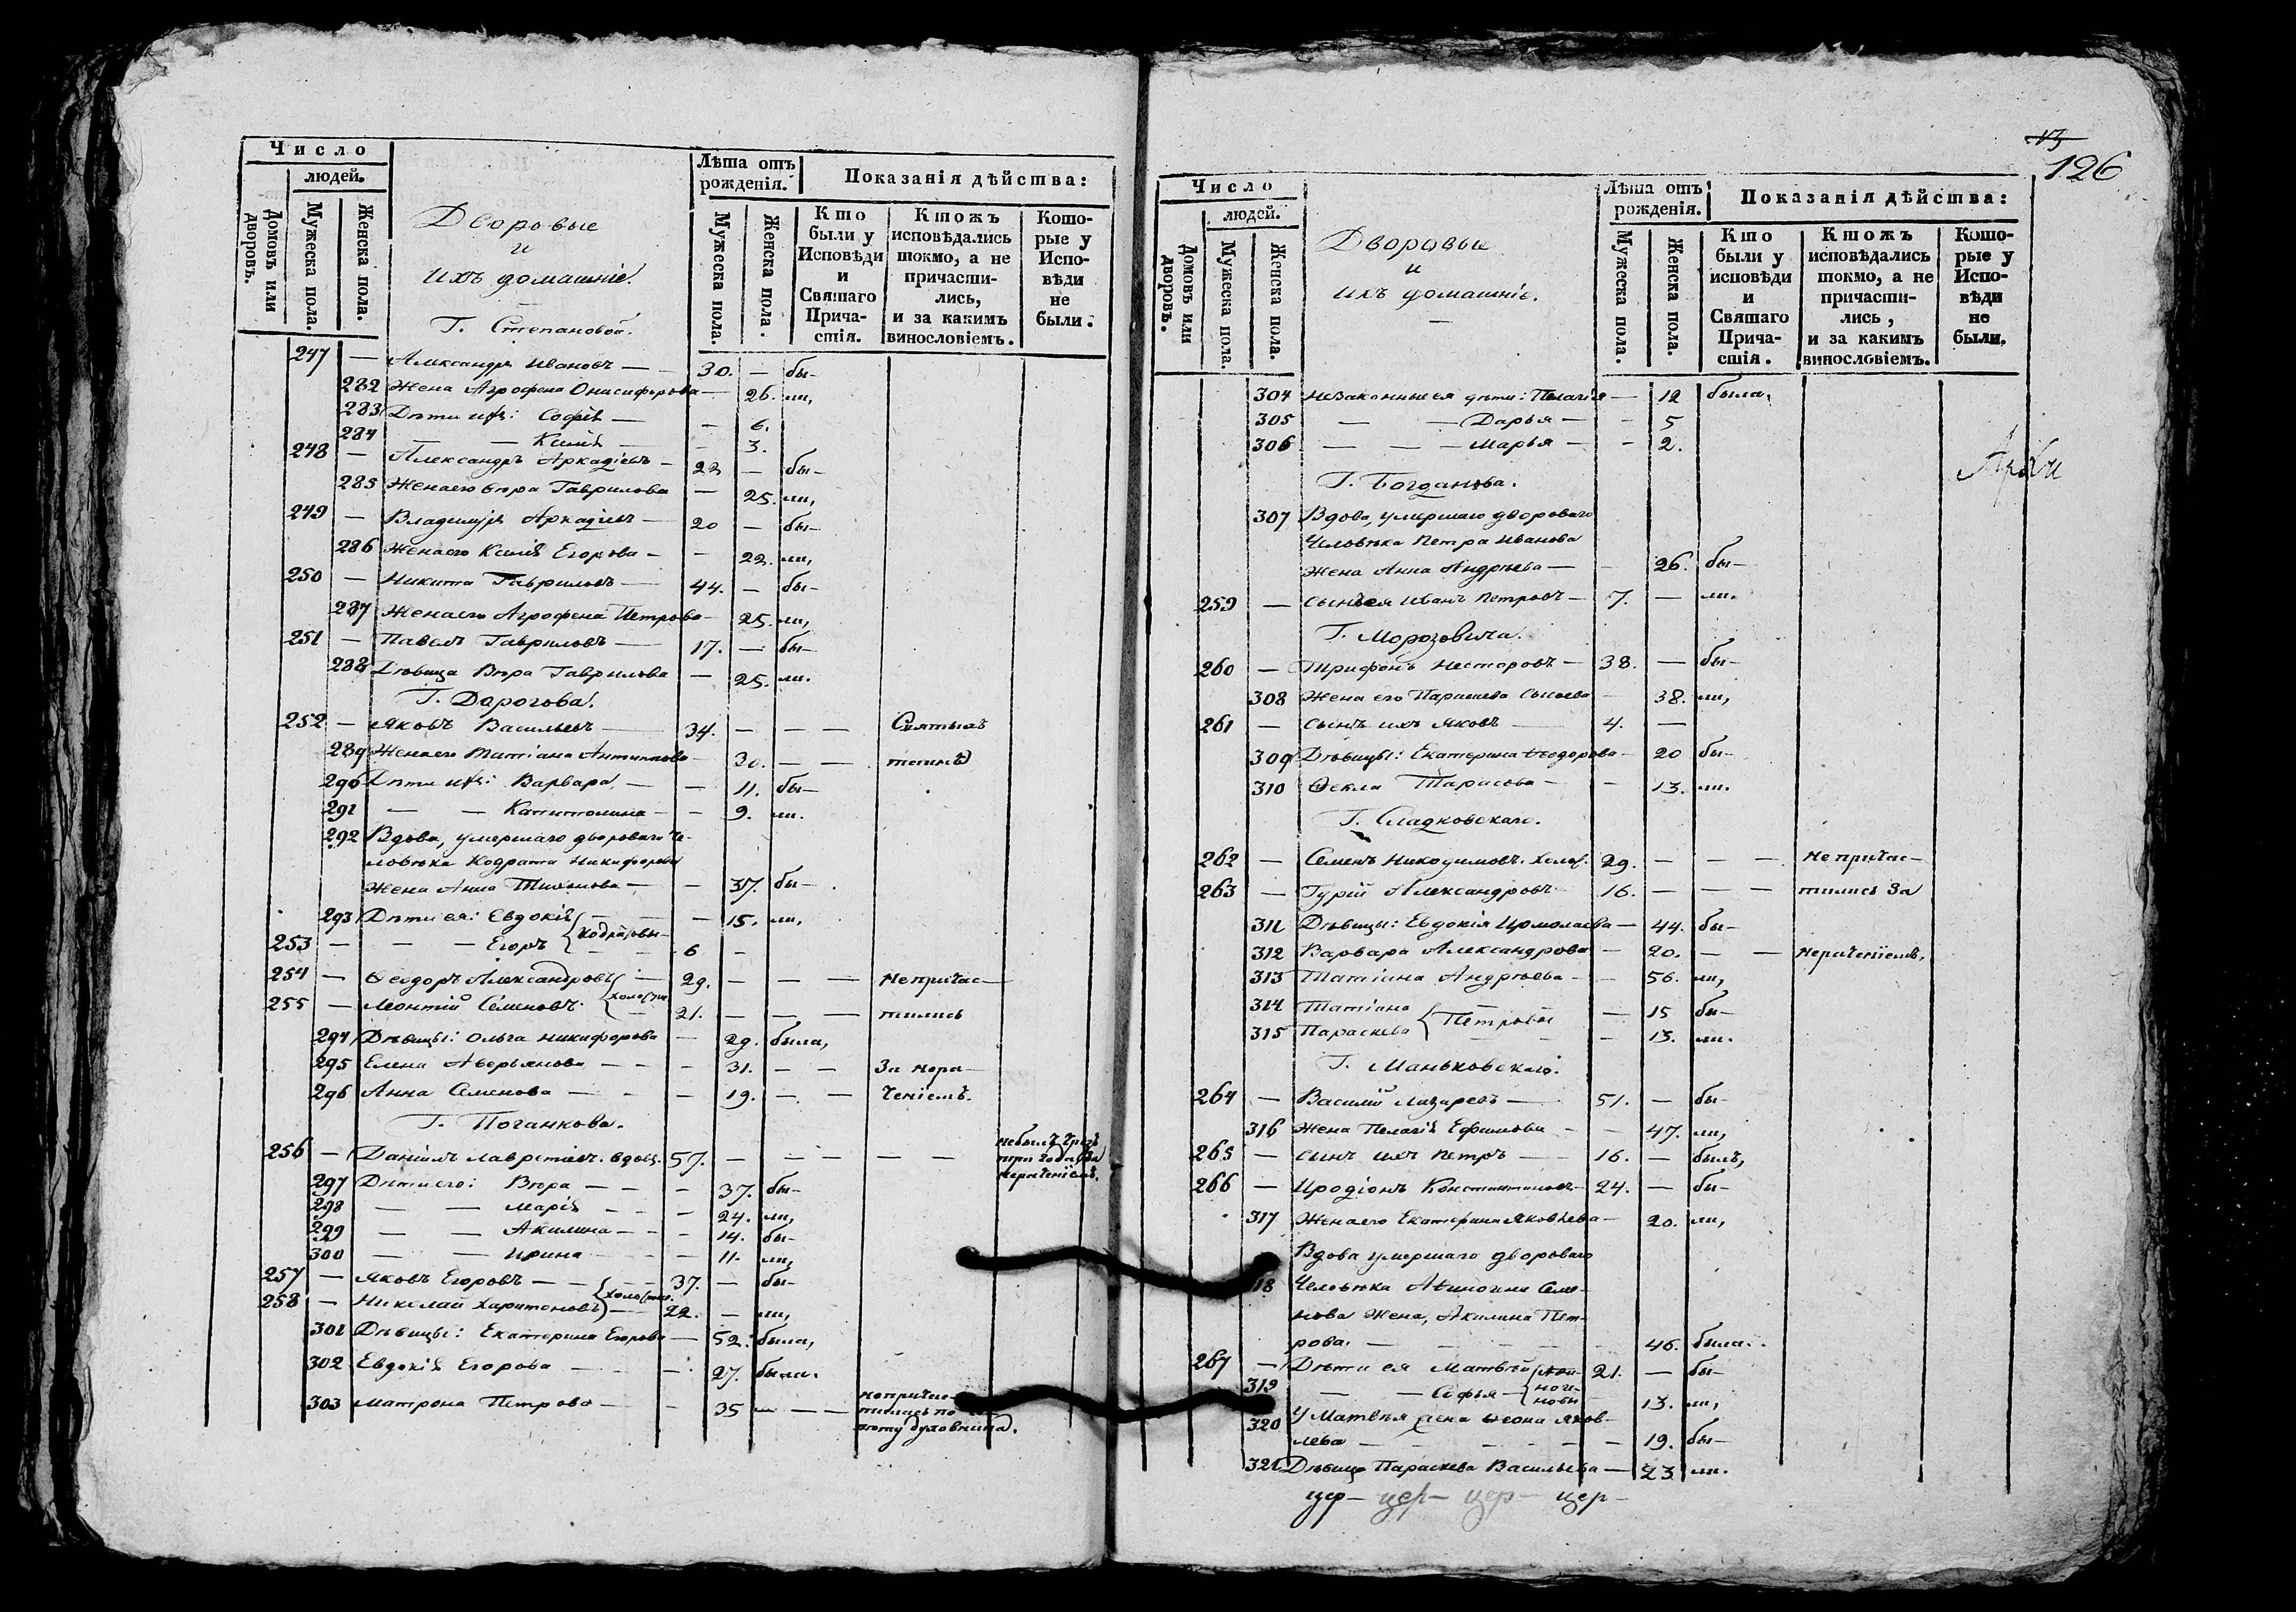 Число
людей.
Домовъ или дворовъ.
Мужеска пола.
Женска пола.
Дворовые
и
ихъ домашніе.
Лѣта отъ рожденія.
Мужеска пола.
Женска пола.
Показанія дѣйства:
Кто были у Исповѣди и Святаго Причастія.
Ктожъ исповѣдались токмо, а не причастились, и за какимъ винословіемъ.
Которые у Исповѣди не были.
Г. Степановой.
247 — Александръ Ивановъ — 30. — бы-
282 Жена Агрофена Онисифорова — 26. ли,
283 Дѣти ихъ: Софія — — 6.
284 — — Ксенія — — 3.
248 — Александръ Аркадіевъ — 22 — бы-
285 Жена его Вѣра Гаврилова — 25. ли,
249 — Владимиръ Аркадіевъ — 20 — бы-
286 Жена его Ксенія Егорова — — 22. ли,
250 — Никита Гавриловъ — 44. — бы-
287 Жена его Агрофена Петрова — 25. ли,
251 — Павелъ Гавриловъ — 17. — бы-
288 Дѣвица Вѣра Гаврилова — 25. ли.
Г. Дорогова.
252 — Яковъ Васильевъ — 34. — — —
289 Жена его Татіана Антипова 30. — —
290 Дѣти ихъ: Варвара — — 11. бы-
291 — — Капитолина — — 9. ли.
292 Вдова, умершаго двороваго че-
ловѣка Кодрата Никифорова
жена Анна Тихонова — — 37. бы-
293 Дѣти ея: Евдокія — — 15. ли,
Кодратовы
253 — — — Егоръ — 6 —
254 — Ѳеодоръ Александровъ — 29. — — — Непричас-
холосты
255 — Леонтій Семеновъ — 21. — — — тились
294 Дѣвицы: Ольга Никифорова — 29. была,
295 Елена Аверьянова — — — 31. — — За нера-
296 Анна Семенова — — — 19. — — ченіемъ.
Г. Поганкова.
256 — Даніилъ Лаврентіевъ. вдов. 57. — — — — — небылъ чрезъ
три года за
нераченіемъ.
297 Дѣти его: Вѣра — — — 37. бы-
298 — — Марія — — — 24. ли,
299 — — Акилина — — — 14. бы-
300 — — Ирина — — 11. ли,
257 — Яковъ Егоровъ — — 37. — бы-
холосты.
258 — Николай Харитоновъ — 22. — ли,
301 Дѣвицы: Екатерина Егорова — 52. была,
302 Евдокія Егорова — — 27. была.
303 Матрона Петрова — — 35 — — — непричас-
тилась по со-
вѣту духовника.
13
126
Число
людей.
Домовъ или дворовъ.
Мужеска пола.
Женска пола.
Дворовые
и
ихъ домашніе.
Лѣта отъ рожденія.
Мужеска пола.
Женска пола.
Показанія дѣйства:
Кто были у исповѣди и Святаго Причастія.
Ктожъ исповѣдались токмо, а не причастились, и за какимъ винословіемъ.
Которые у Исповѣди не были.
304 незаконные ея дѣти: Пелагія — 12 была,
305 — — Дарья — — 5
306 — — — Марья — — 2.
Г. Богданова.
307 Вдова, умершаго двороваго
человѣка Петра Иванова
жена Анна Андреева — — 26. бы-
259 — сынъ ея Иванъ Петровъ — 7. — ли.
Г. Морозовича.
260 — Трифонъ Несторовъ — 38. — бы-
308 Жена его Параскева Сысоева — 38. ли,
261 — сынъ ихъ Яковъ — 4. —
309 Дѣвицы: Екатерина Ѳеодорова — 20 бы-
310 Ѳекла Тарасова — — 13. ли.
Г. Сладковскаго.
262 — Семенъ Никодимовъ. холос. 29. — — — непричас-
263 — Гурій Александровъ 16. — — — тились За
311 Дѣвицы: Евдокія Ирмолаева — 44. бы-
312 Варвара Александрова — 20. — — нераченіемъ.
313 Татіана Андреева — — 56. ли,
314 Татіана — 15 бы-
Петровы
315 Параскева — 13. ли.
Г. Маньковскаго.
264 — Василій Лазаревъ — 51. — бы-
316 Жена Пелагія Ефимова — — 47. ли,
265 — сынъ ихъ Петръ — 16. — былъ,
266 — Иродіонъ Константиновъ 24. — бы-
317 Жена его Екатерина Яковлева — 20. ли,
Вдова умершаго двороваго
18 человѣка Аѳиногина Семе-
нова жена, Акилина Пет-
рова. — — — 46. была.
267 — Дѣти ея Матвѣй 21. — бы-
Аѳи-
ноге-
новы
319 — — Софья — 13. ли,
320 У Матвѣя жена Ѳеона Яков-
лева — — — — 19. бы-
321 Дѣвица Параскева Васильева — 23 ли.
цер- цер- цер- цер-